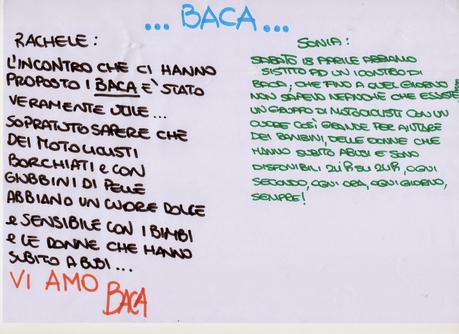 ... BACA ...
RACHELE:
L'INCONTRO CHE CI HANNO
PROPOSTO I BACA E' STATO
VERAMENTE UTILE...
SOPRATUTO SAPERE CHE
DEI MOTOCICLISTI
BORCHIATI e CON
GIUBBINI DI PELLE
ABBIANO UN CUORE DOLCE
e SENSIBILE CON I BIMBI
e LE DONNE CHE HANNO
SUBITO ABUSI...
VI AMO BACA
SONIA:
SABATO 18 APRILE ABBIAMO
SISTITO AD UN ICONTRO DI
BACA, CHE FINO A QUEL GIORNO
NON SAPEVO NEANCHE CHE ESISTESSE
UN GRUPPO DI MOTOCICLISTI CON UN
CUORE COSÌ GRANDE PER AIUTARE
DEI BAMBINI, DELLE DONNE CHE
HANNO SUBITO ABUSI E SONO
DISPONIBILI 24h SU 24h, OGNI
SECONDO, OGNI ORA, OGNI GIORNO,
SEMPRE!